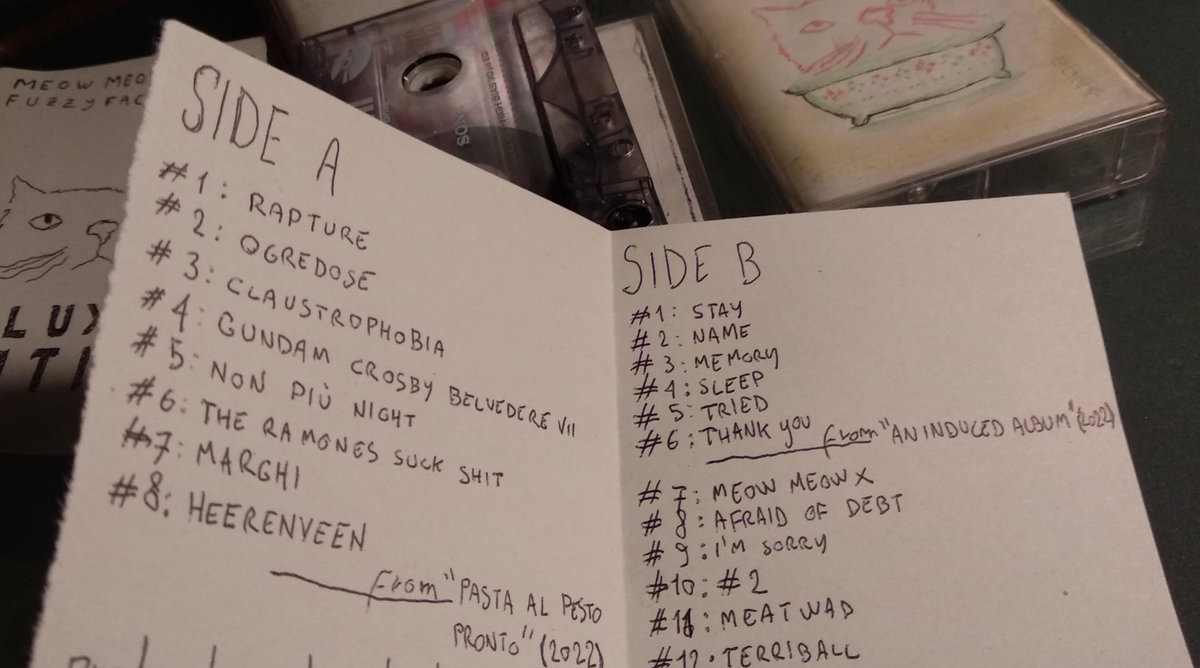 MEOW MEO
FUZZY FAC
LUX
ITI
HIGH BIAS
SIDE A
#1: RAPTURE
#2: OGREDOSE
#3: CLAUSTROPHOBIA
#4: GUNDAM CROSBY BELVEDERE VII
#5: NON PIÙ NIGHT
#6: THE RAMONES SUCK SHIT
#7: MARGHI
#8: HEERENVEEN
from "PASTA AL PESTO
PRONTO" (2022)
SIDE B
#1: STAY
#2: NAME
#3: MEMORY
#4: SLEEP
#5: TRIED
#6: THANK YOU
from "AN INDUCED ALBUM" (2022)
#7: MEOW MEOW X
#8: AFRAID OF DEBT
#9: I'M SORRY
#10: #2
#11: MEATWAD
#12: TERRIBALL